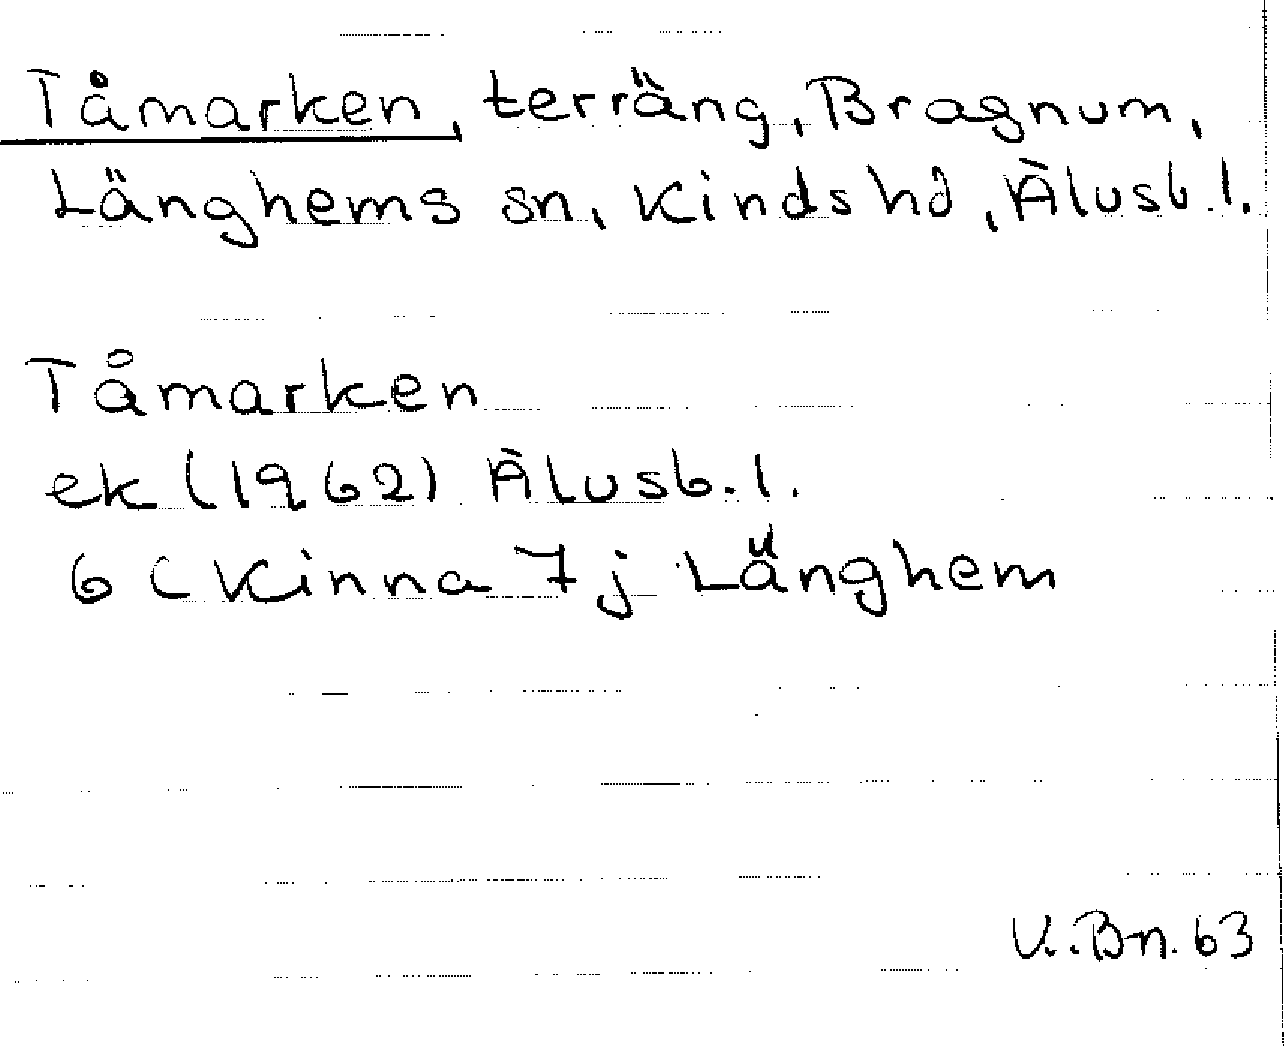 Tåmarken, terräng, Bragnum,
Länghems sn, Kinds hd, Älvsb. l.
Tåmarken
ek (1962) Älvsb. l.
6 C Kinna 7 j Länghem
V. Bn. 63